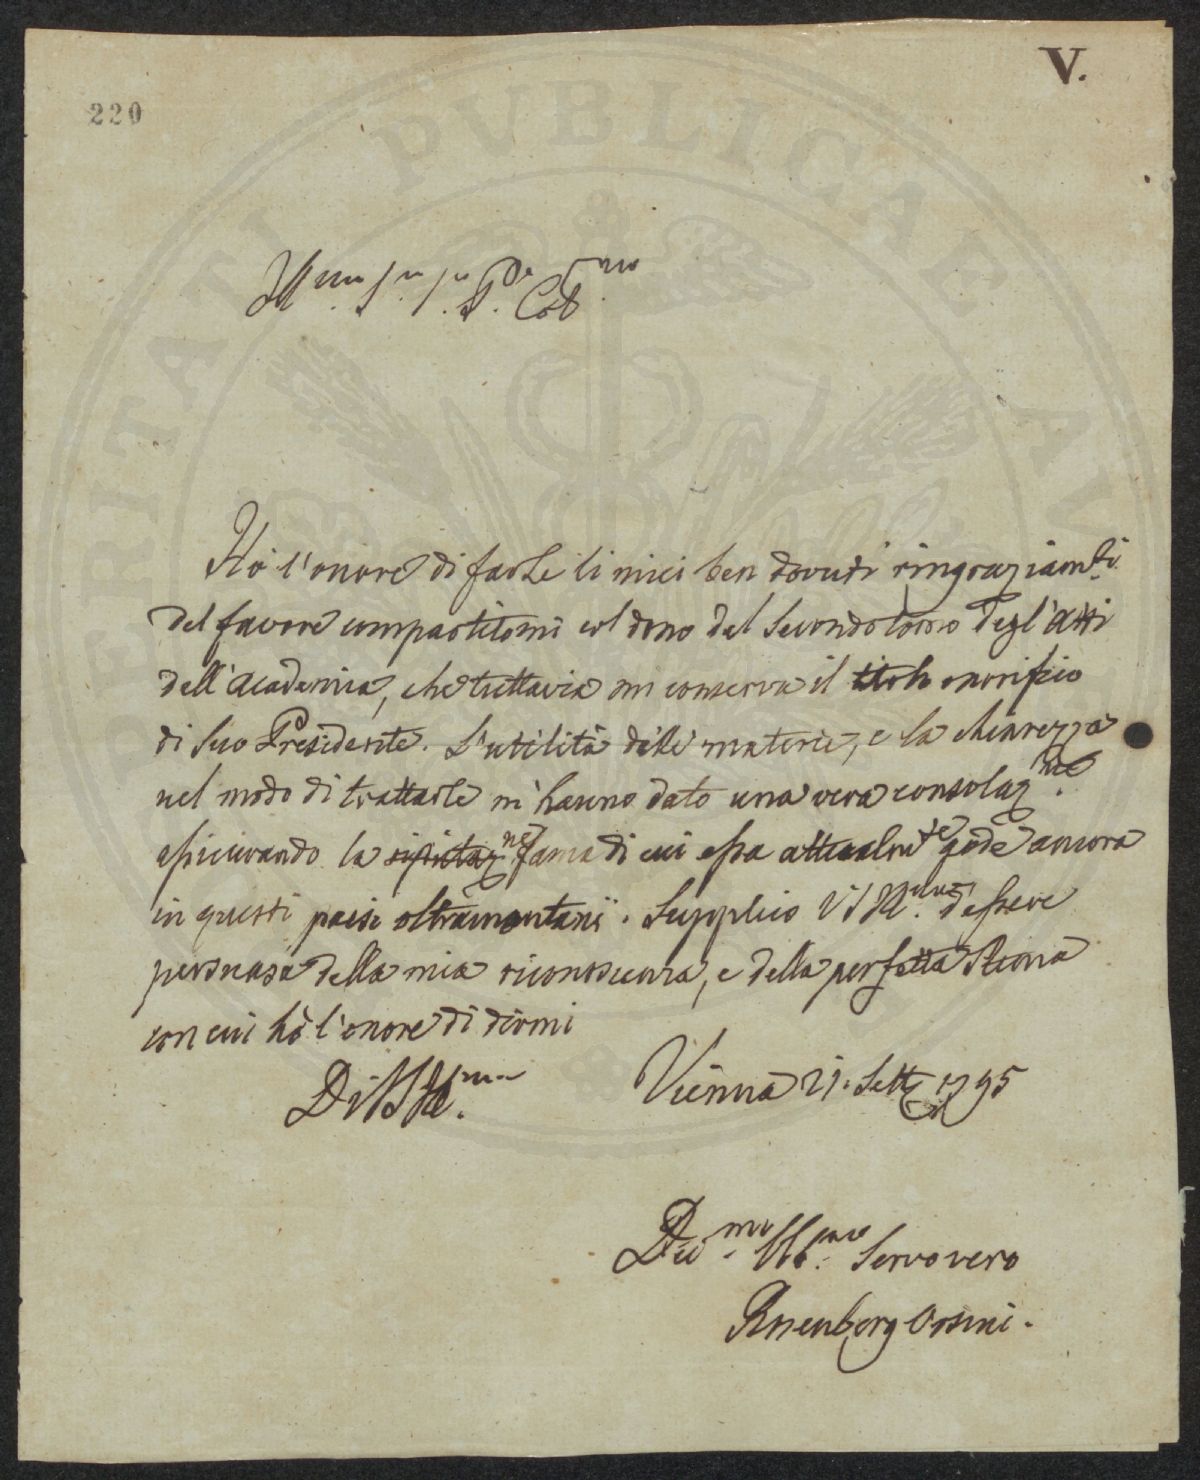 V.
220
PVBLICAE
Ill.mo Sig.r Sig.r P.ne Col.mo
Hò l'onore di farLe li miei ben dovuti ringraziam.ti
del favore compartitomi col dono del Secondo tomo degl'atti
dell'Academia, che tuttavia mi conserva il titolo onorifico
di Suo Presidente. L'utilità delle materie, e la chiarezza
nel modo di trattarle m'hanno dato una vera consolaz.ne
assicurando la fama di cui essa attualm.te gode ancora
in questi paesi oltramontani. Supplico V.S. Ill.ma d'essere
persuasa della mia riconoscenza, e della perfetta stima
con cui hò l'onore di dirmi
Di V.S. Ill.ma Vienna 21. Sett. 1795
Dev.mo Obb.mo Servo vero
Rosenberg Orsini.